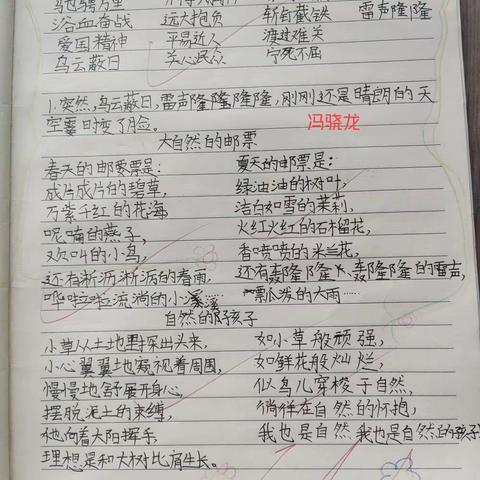 浴血奋战 远大抱负 斩钉截铁 雷声隆隆
爱国精神 平易近人 渡过难关
乌云蔽日 关心民众 宁死不屈
1.突然,乌云蔽日,雷声隆隆隆隆,刚刚还是晴朗的天
空霎时变了脸。
冯骁龙
大自然的邮票
春天的邮票是: 夏天的邮票是:
成片成片的碧草, 绿油油的树叶,
万紫千红的花海, 洁白如雪的茉莉,
呢喃的燕子, 火红火红的石榴花,
欢叫的小鸟, 香喷喷的米兰花,
还有淅沥淅沥的春雨, 还有轰隆隆轰隆隆的雷声,
哗啦啦流淌的小溪 瓢泼的大雨……
自然的孩子
小草从土地里探出头来, 如小草般顽强,
小心翼翼地窥视着周围, 如鲜花般灿烂,
慢慢地舒展开身心, 似鸟儿穿梭于自然,
摆脱泥土的束缚, 徜徉在自然的怀抱,
他向着太阳挥手, 我也是自然我也是自然的孩子
理想是和大树比肩生长。